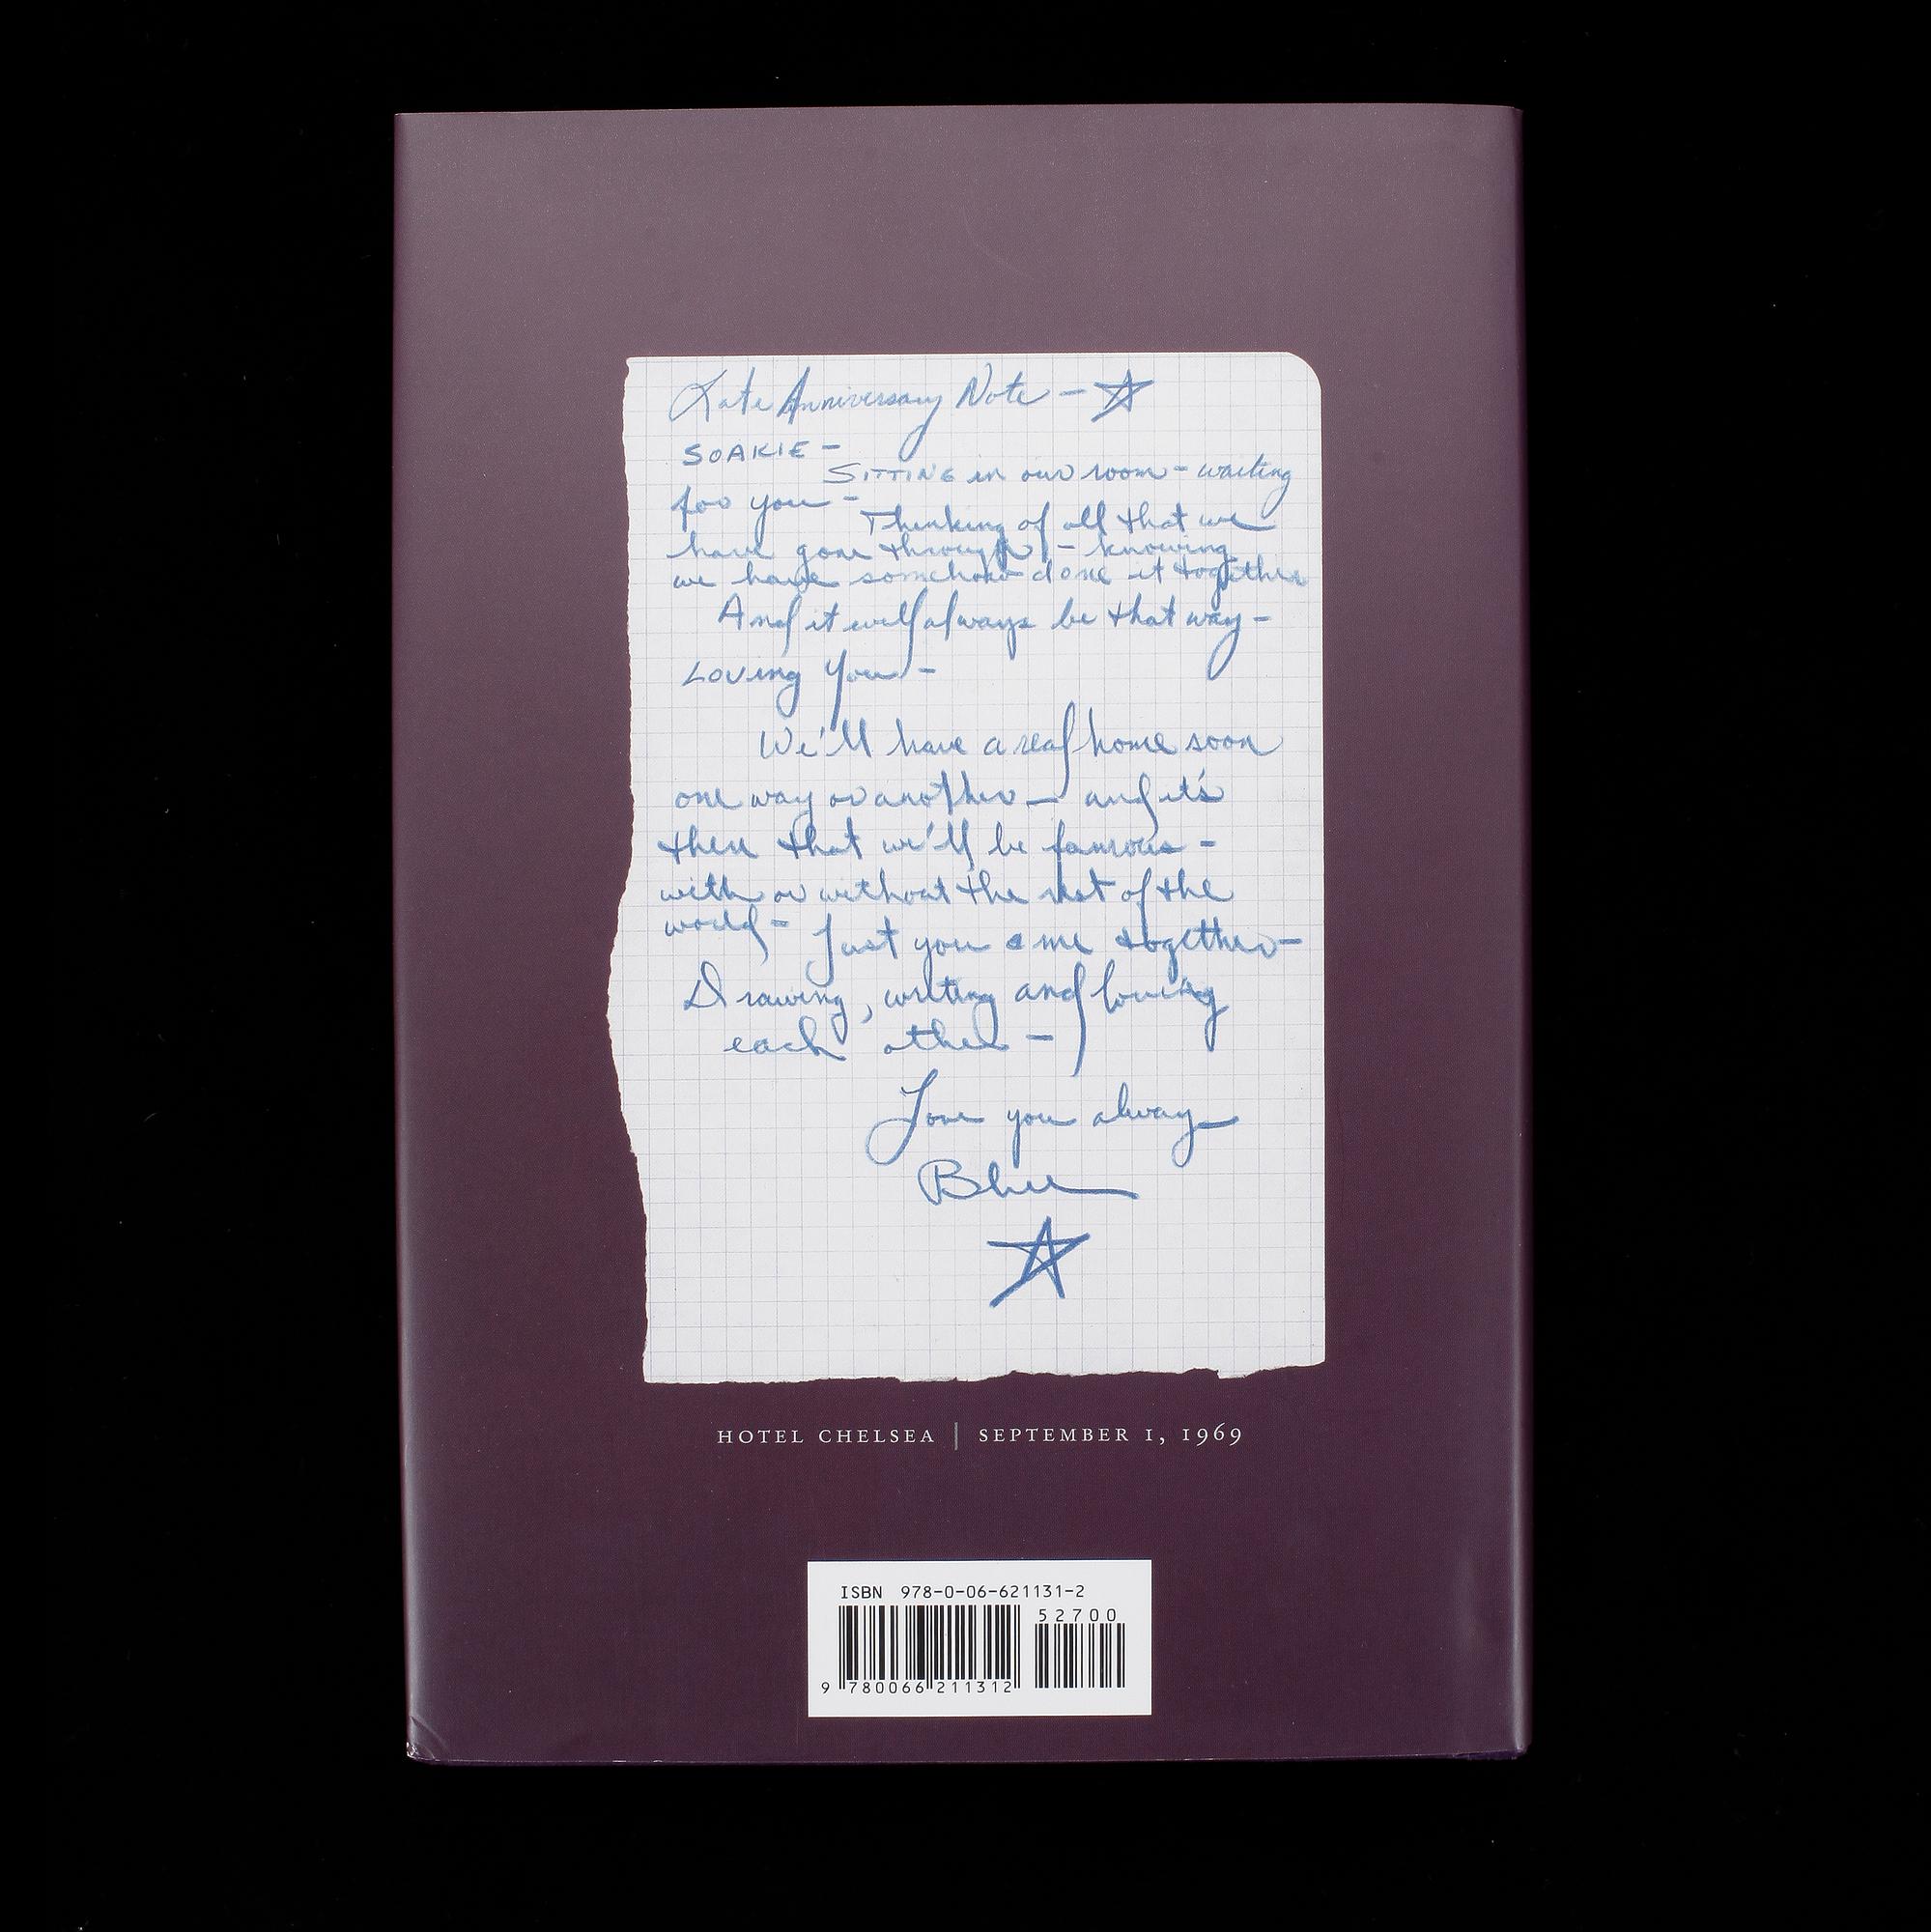 Late Anniversary Note — ☆
SOAKIE —
SITTING in our room - waiting
for you -
Thinking of all that we
have gone through - knowing
we have somehow done it together
And it will always be that way -
LOVing You -
We'll have a real home soon
one way or another — and it's
there that we'll be famous -
with or without the rest of the
world -
Just you & me together -
Drawing, writing and loving
each other -
Love you always
Blue
☆
HOTEL CHELSEA | SEPTEMBER 1, 1969
ISBN 978-0-06-621131-2
52700
9 780066 211312